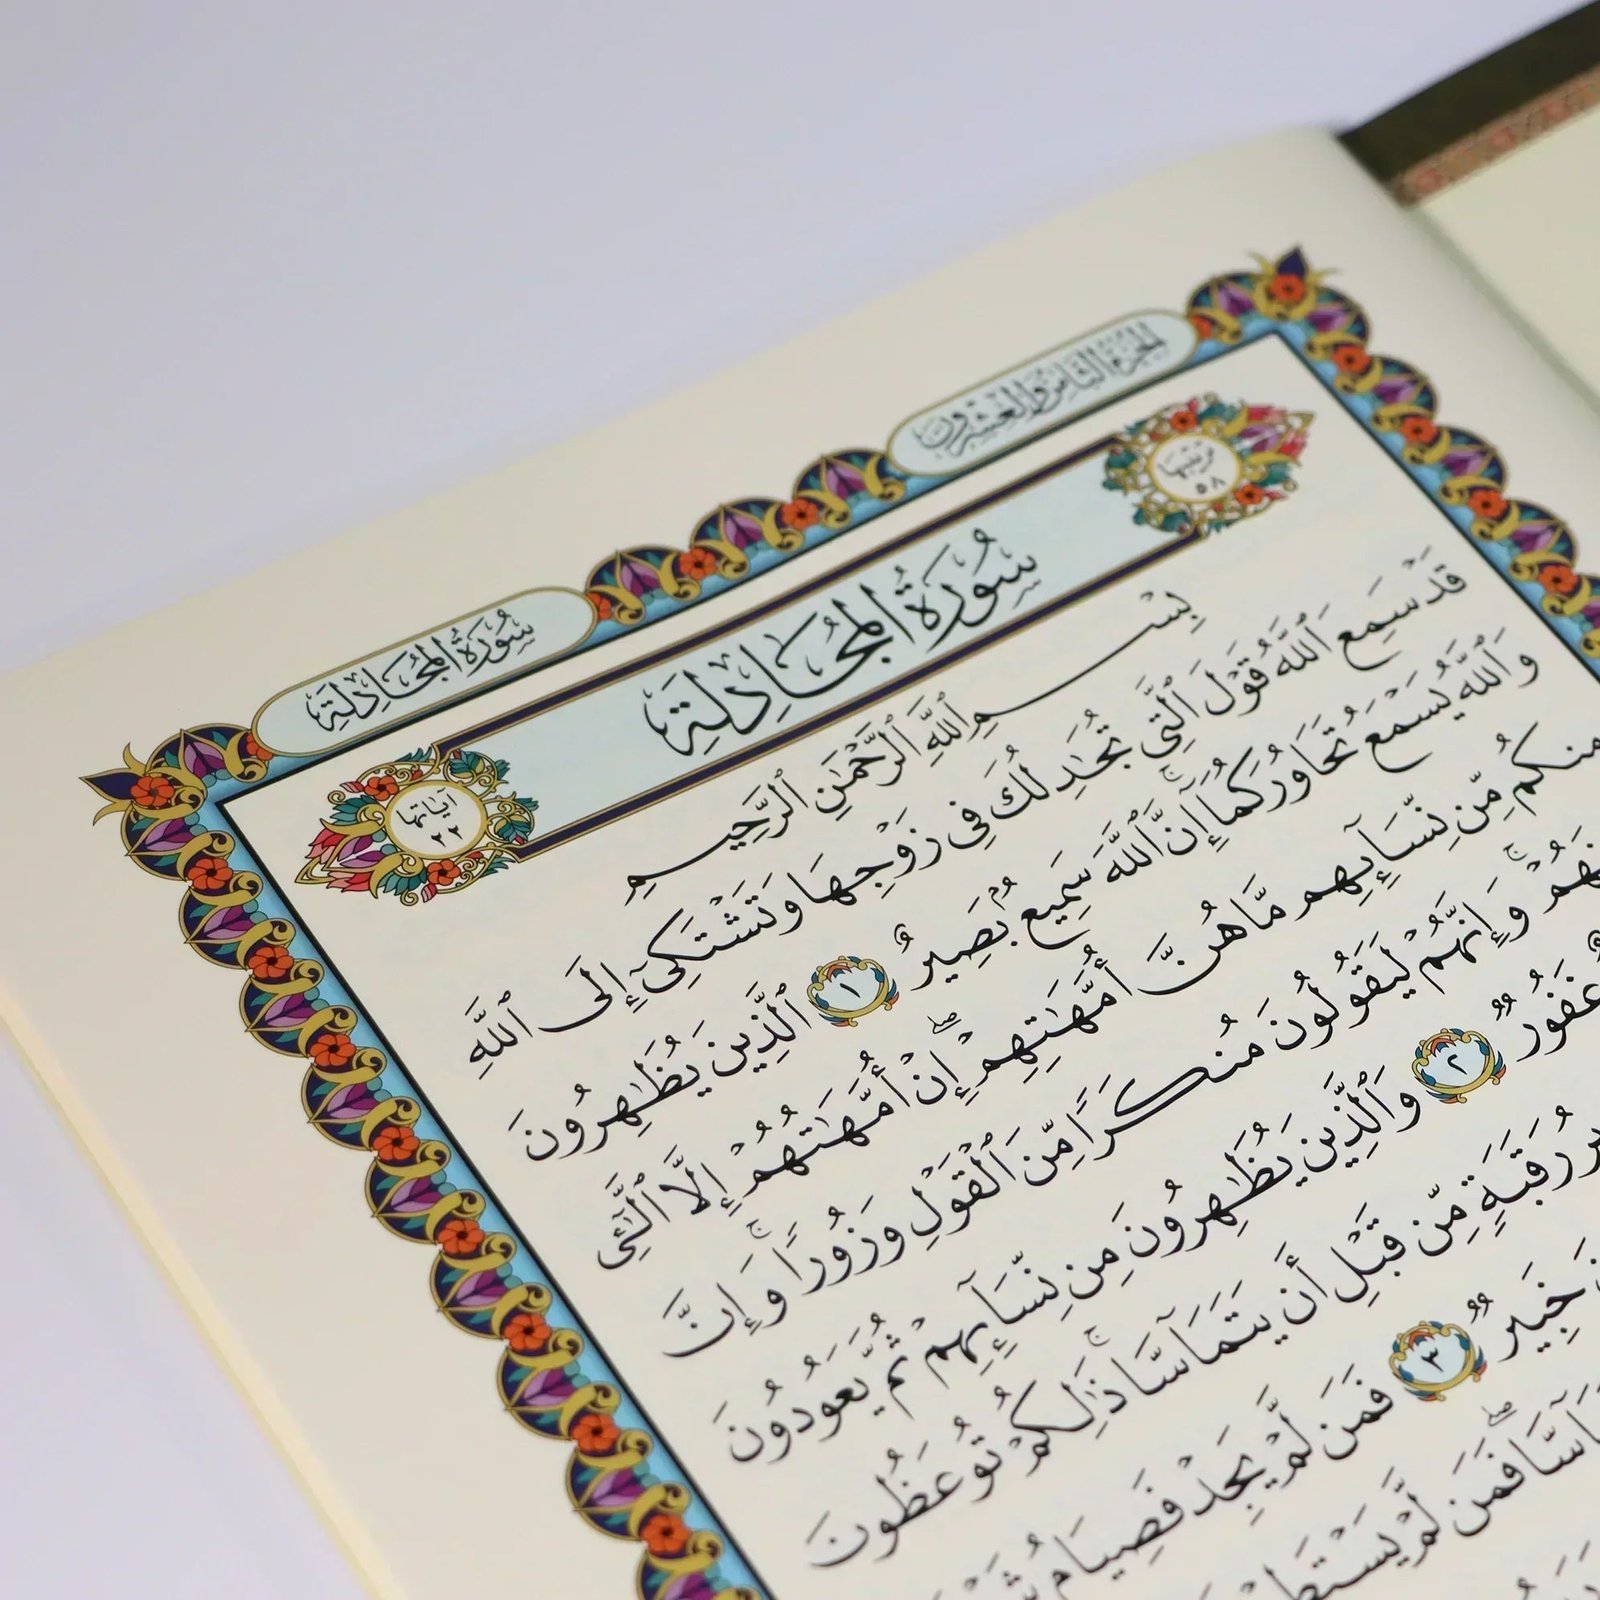 الجزء الثامن والعشرون
سورة المجادلة
ترتيبها
٥٨
سُورَةُ المُجَادِلَةِ
آياتها
٢٢
بِسْمِ ٱللَّهِ ٱلرَّحْمَٰنِ ٱلرَّحِيمِ
قَدْ سَمِعَ ٱللَّهُ قَوْلَ ٱلَّتِى تُجَٰدِلُكَ فِى زَوْجِهَا وَتَشْتَكِىٓ إِلَى ٱللَّهِ
وَٱللَّهُ يَسْمَعُ تَحَاوُرَكُمَآ إِنَّ ٱللَّهَ سَمِيعٌۢ بَصِيرٌ ١ ٱلَّذِينَ يُظَٰهِرُونَ
مِنكُم مِّن نِّسَآئِهِم مَّا هُنَّ أُمَّهَٰتِهِمْ إِنْ أُمَّهَٰتُهُمْ إِلَّا ٱلَّٰٓـِٔى
وَإِنَّهُمْ لَيَقُولُونَ مُنكَرًا مِّنَ ٱلْقَوْلِ وَزُورًا وَإِنَّ
غَفُورٌ ٢ وَٱلَّذِينَ يُظَٰهِرُونَ مِن نِّسَآئِهِمْ ثُمَّ يَعُودُونَ
رَقَبَةٍ مِّن قَبْلِ أَن يَتَمَآسَّا ذَٰلِكُمْ تُوعَظُونَ
خَبِيرٌ ٣ فَمَن لَّمْ يَجِدْ فَصِيَامُ
فَمَن لَّمْ يَسْتَطِعْ